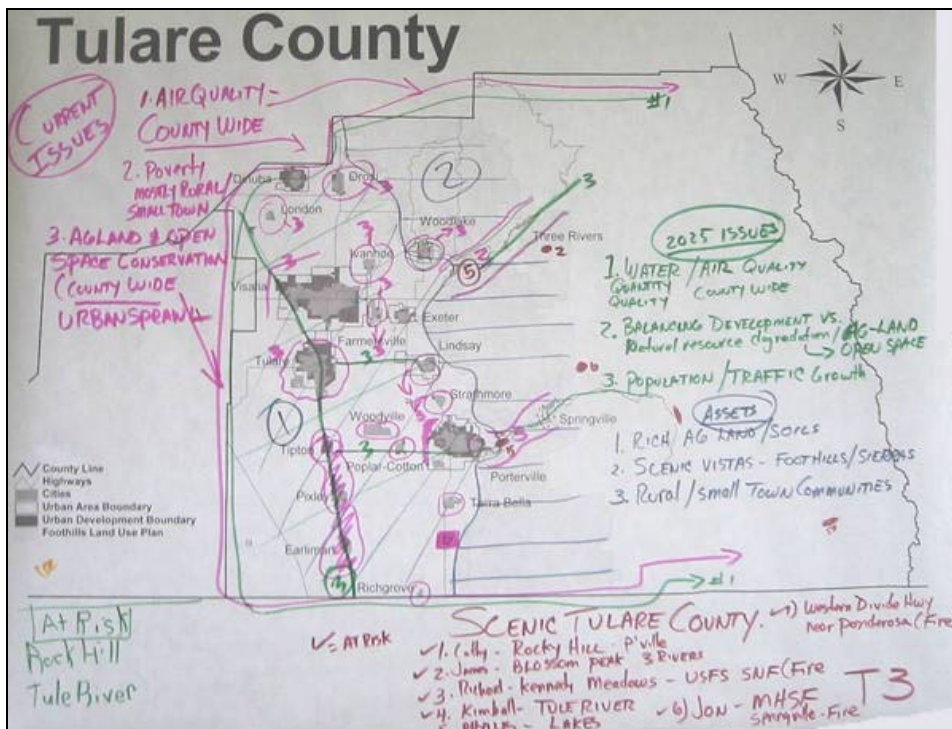 Tulare County
N
W E
S
CURRENT
ISSUES
1. AIR QUALITY -
COUNTY WIDE
2. Poverty
MOSTLY RURAL/
SMALL TOWN
3. AG LAND & OPEN
SPACE CONSERVATION
(COUNTY WIDE
URBAN SPRAWL
#1
Dinuba
Orosi
London
3
2
Woodlake
3
Three Rivers
2
5
Ivanhoe
3
Visalia
Exeter
Farmersville
Lindsay
Tulare
3
Strathmore
1
Woodville
Springville
Tipton
3
Poplar-Cotton
Porterville
Pixley
Terra Bella
Earlimart
Richgrove
#1
2025 ISSUES
1. WATER / AIR QUALITY
QUANTITY COUNTY WIDE
QUALITY
2. BALANCING DEVELOPMENT VS.
Natural resource degradation / AG-LAND
OPEN SPACE
3. POPULATION / TRAFFIC Growth
ASSETS
1. RICH / AG LAND / SOILS
2. SCENIC VISTAS - FOOTHILLS/SIERRAS
3. Rural / small Town Communities
County Line
Highways
Cities
Urban Area Boundary
Urban Development Boundary
Foothills Land Use Plan
At Risk
Rock Hill
Tule River
✓ = AT RISK
SCENIC TULARE COUNTY.
✓ 1. Cathy - ROCKY HILL - P'ville
✓ 2. James - BLOSSOM PEAK 3 RIVERS
✓ 3. Richard - Kennedy Meadows - USFS SNF (Fire
✓ 4. Kimball - TULE RIVER
LAKES
✓ 6) JON - MHSF
Springville - Fire
✓ 7) Western Divide Hwy
near Ponderosa (Fire
T3